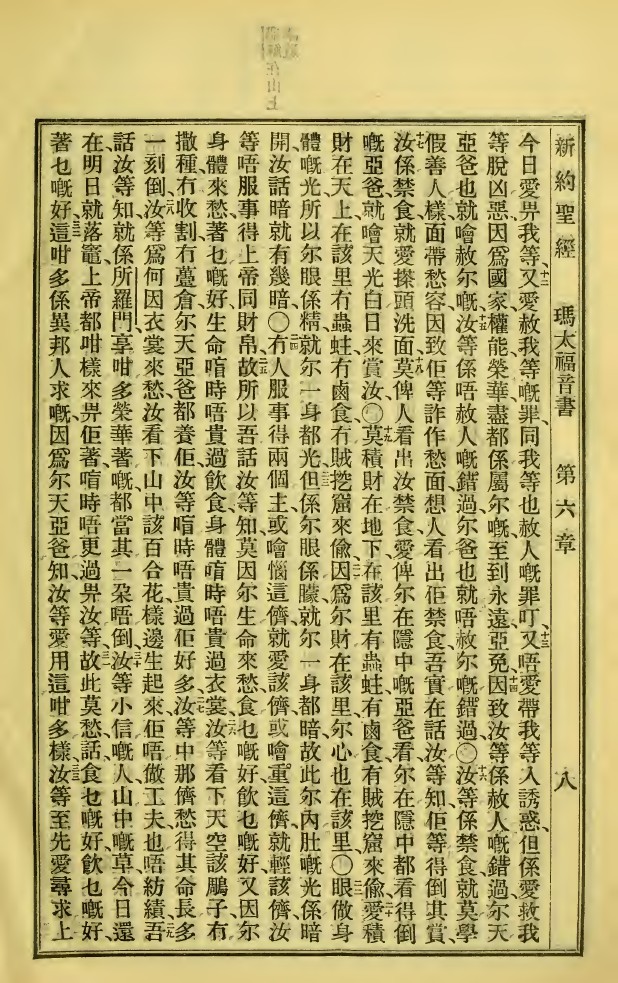 新約聖經 瑪太福音書 第六章 八
今日愛畀我等十二又愛赦我等嘅罪、同我等也赦人嘅罪叮、十三又唔愛帶我等入誘惑、但係愛救我
等脫凶惡、因爲國家權能榮華、盡都係屬尔嘅、至到永遠、亞兔、十四因致汝等係赦人嘅錯過、尔天
亞爸也就噲赦尔嘅、十五汝等係唔赦人嘅錯過、尔爸也就唔赦尔嘅錯過〇十六汝等係禁食、就莫學
假善人樣面帶愁容、因致佢等詐作愁面、想人看出佢禁食、吾實在話汝等知、佢等得倒其賞、
十七汝係禁食、就愛搽頭洗面、十八莫俾人看出汝禁食、愛俾尔在隱中嘅亞爸看、尔在隱中都看得倒
嘅亞爸、就噲天光白日來賞汝〇十九莫積財在地下、在該里有蟲蛀有鹵食、有賊挖窟來偸、二十愛積
財在天上、在該里冇蟲蛀冇鹵食、冇賊挖窟來偸、二一因爲尔財在該里、尔心也在該里〇二二眼做身
體嘅光、所以尔眼係精、就尔一身都光、二三但係尔眼係矇、就尔一身都暗、故此尔內肚嘅光係暗、
開汝話暗就有幾暗〇二四冇人服事得兩個主、或噲惱這儕、就愛該儕、或噲重這儕、就輕該儕、汝
等唔服事得上帝同財帛、二五故所以吾話汝等知、莫因尔生命來愁、食乜嘅好、飮乜嘅好、又因尔
身體來愁、著乜嘅好、生命唷時唔貴過飮食、身體唷時唔貴過衣裳、二六汝等看下天空該鵰子、冇
撒種、冇收割、冇藳倉、尔天亞爸都養佢、汝等唷時唔貴過佢好多、二七汝等中那儕愁得其命長多
一刻倒、二八汝等爲何因衣裳來愁、汝看下山中該百合花樣邊生起來、佢唔做工夫也唔紡績、二九吾
話汝等知、就係所羅門、享咁多榮華著嘅、都當其一朶唔倒、三十汝等小信嘅人、山中嘅草、今日還
在、明日就落竈、上帝都咁樣來畀佢著、唷時唔更過畀汝等、三一故此莫愁話、食乜嘅好、飮乜嘅好、
著乜嘅好、三二這咁多係異邦人求嘅、因爲尔天亞爸知汝等愛用這咁多樣、三三汝等至先愛尋求上